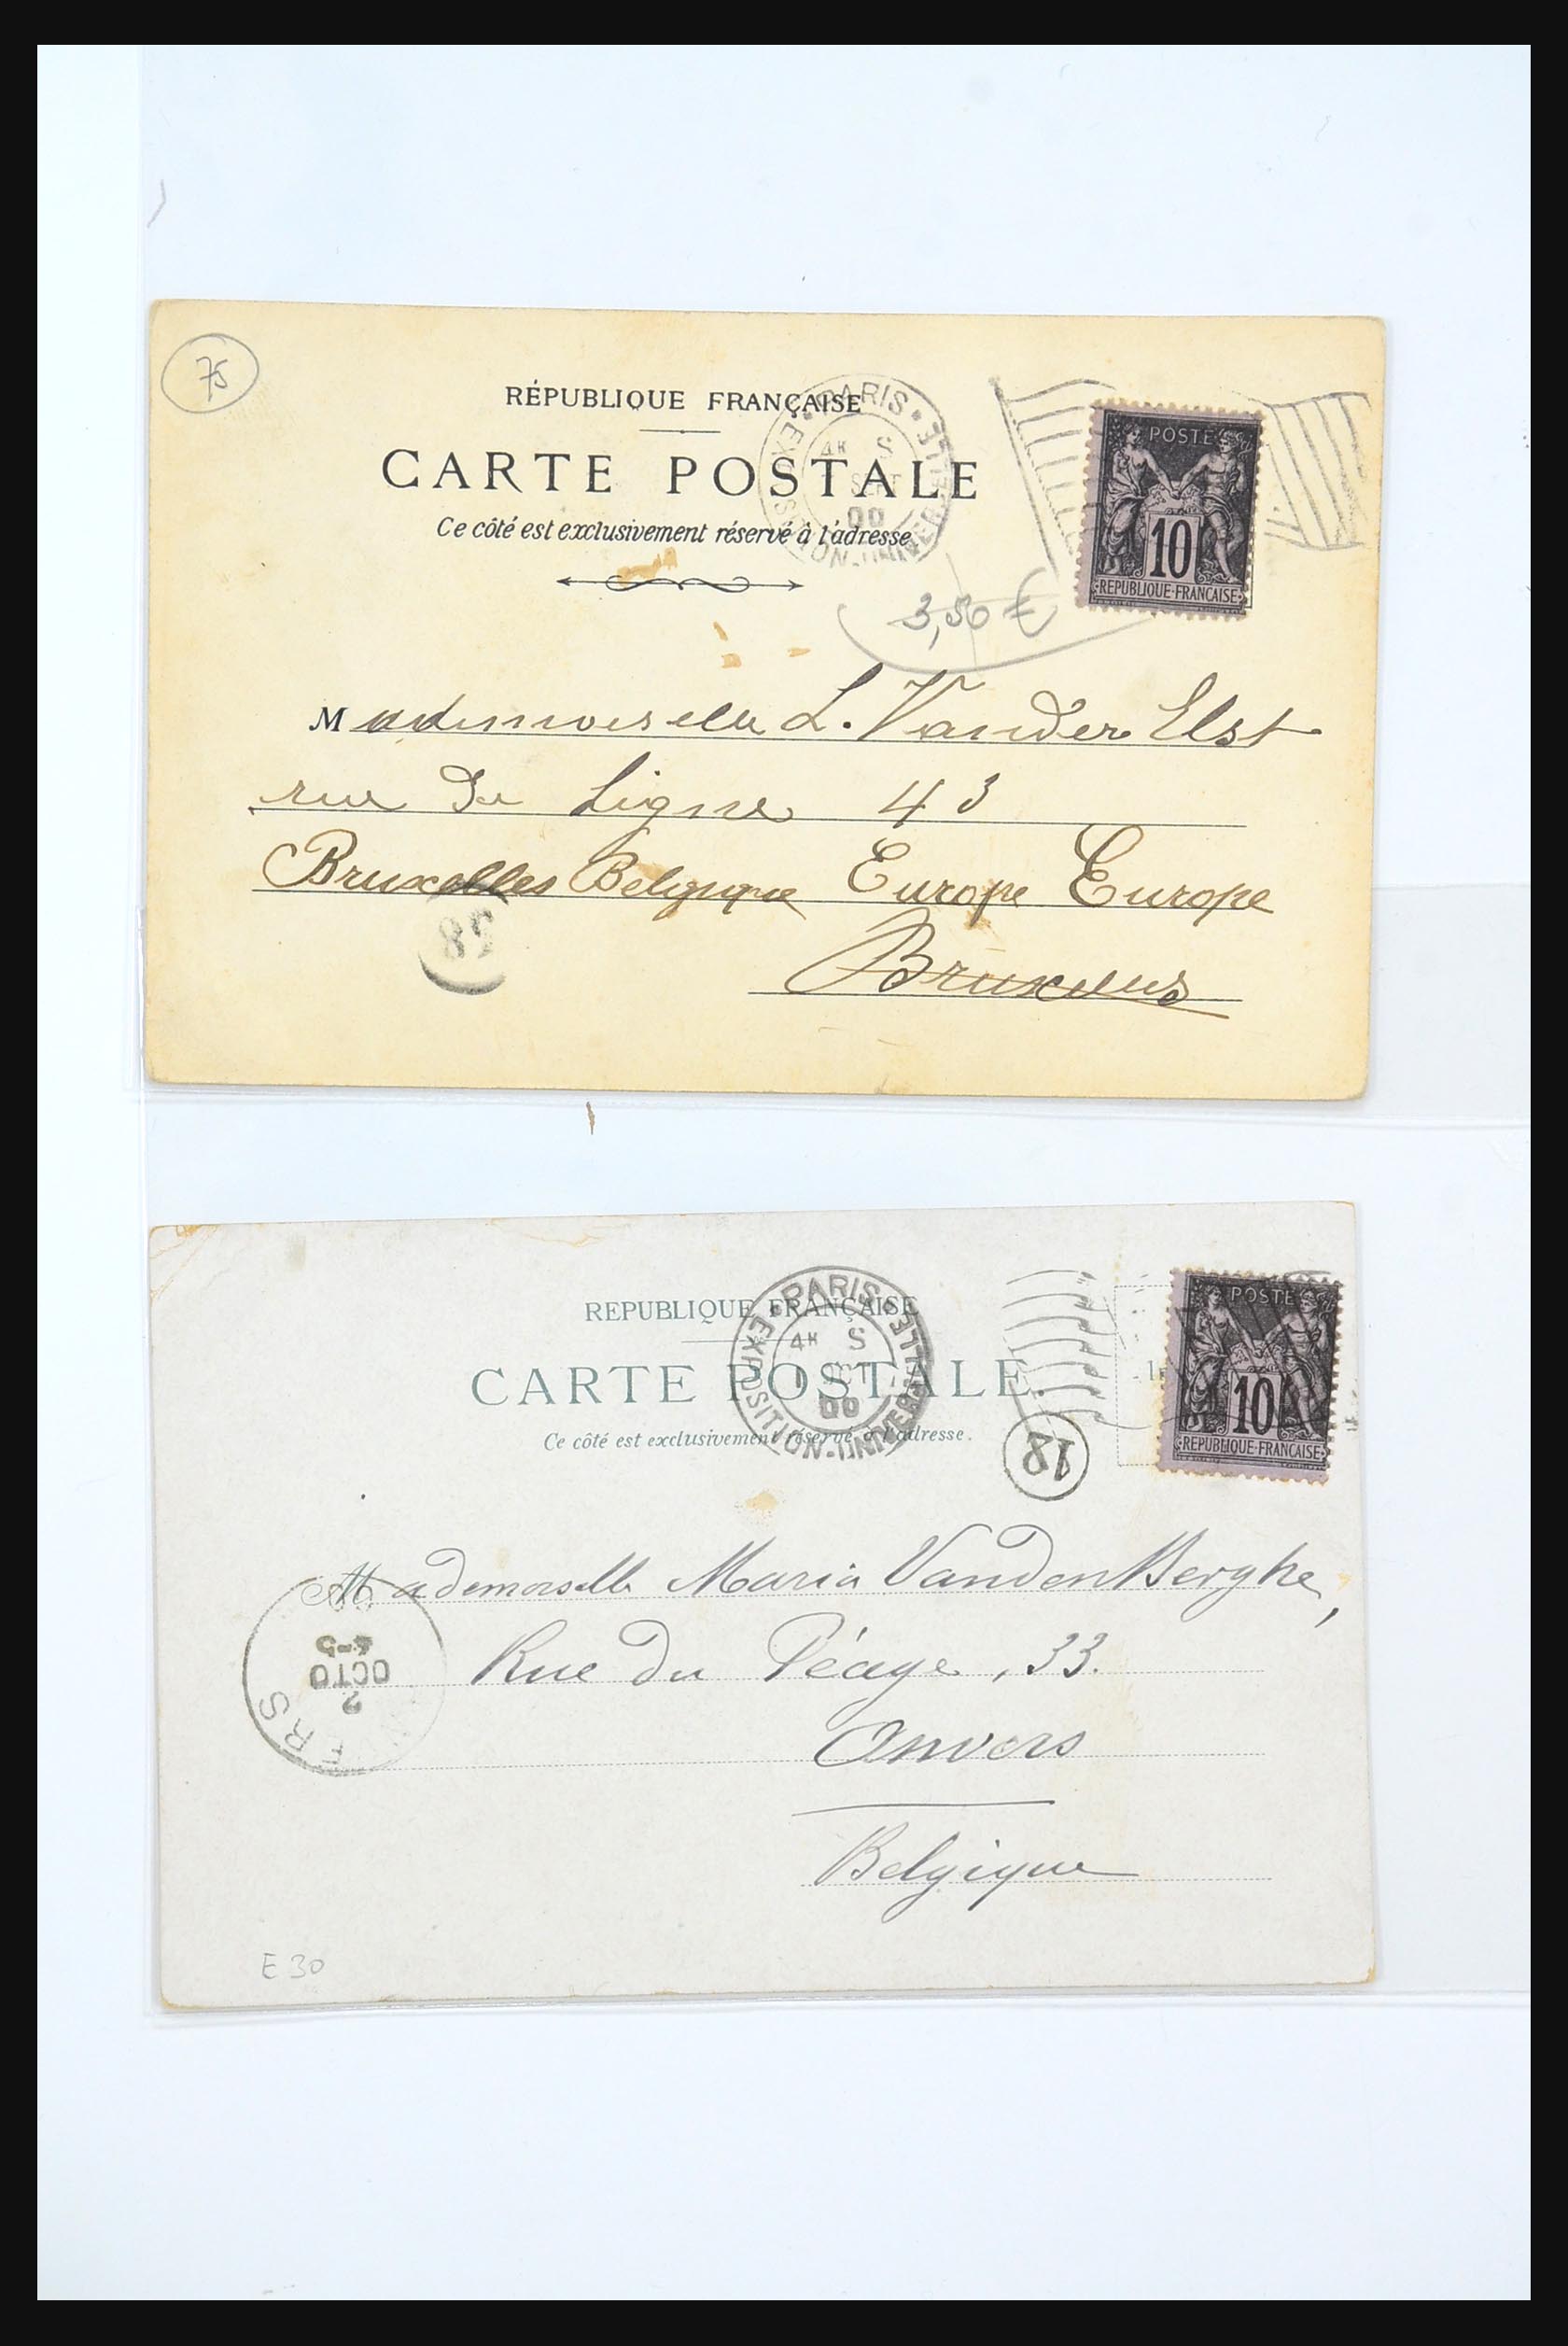 75
RÉPUBLIQUE FRANÇAISE
CARTE POSTALE
Ce côté est exclusivement réservé à l'adresse
PARIS EXPOSITION-UNIVERSELLE
4E S
SEPT
00
POSTE
10
REPUBLIQUE·FRANÇAISE
3,50 €
Mademoiselle L. Vander Elst
rue du Ligne 43
Bruxelles Belgique Europe Europe
Bruxelles
58
REPUBLIQUE FRANÇAISE
CARTE POSTALE
Ce côté est exclusivement réservé à l'adresse.
PARIS EXPOSITION-UNIVERSELLE
4E S
1 OCT
00
POSTE
10
REPUBLIQUE·FRANÇAISE
18
Mademoiselle Maria Vanden Berghe,
Rue du Péage, 33.
Anvers
Belgique
2
OCTO
4-5
ERS
E 30